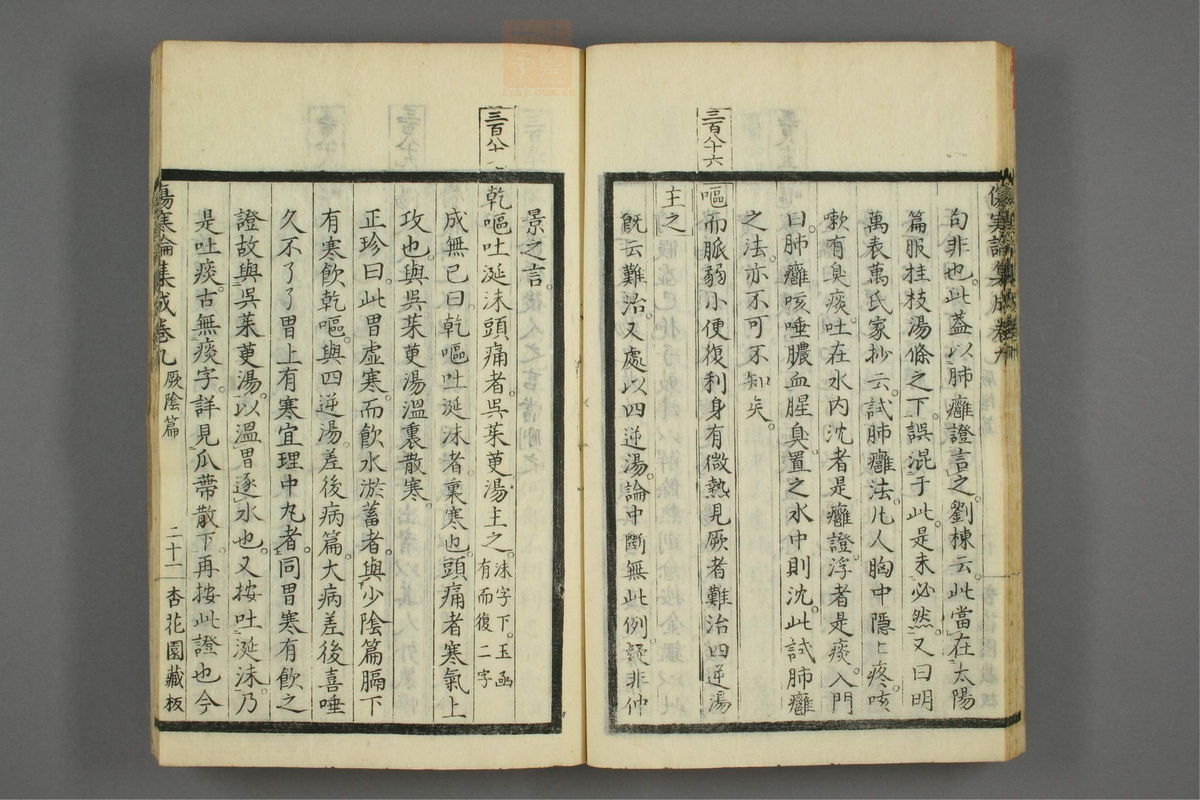 傷寒論集成卷九
句非也。此蓋以肺癰證言之。劉棟云。此當在太陽
篇服桂枝湯條之下。誤混于此。是未必然。又曰明
萬表萬氏家抄云。試肺癰法。凡人胸中隱上疼。咳
嗽有臭痰。吐在水内沈者是癰證。浮者是痰。入門
曰。肺癰咳唾膿血腥臭。置之水中則沈。此試肺癰
之法。亦不可不知矣。
三百八十六
嘔而脈弱小便復利身有微熱見厥者難治四逆湯
主之
既云難治。又處以四逆湯。論中斷無此例。疑非仲
景之言。
三百八十
乾嘔吐涎沫頭痛者。吳茱萸湯主之。沫字下。玉函
有而復二字
成無已曰。乾嘔吐涎沫者。裏寒也。頭痛者寒氣上
攻也。與吳茱萸湯溫裏散寒。
正珍曰。此胃虛寒。而飲水淤蓄者。與少陰篇膈下
有寒飲乾嘔。與四逆湯。差後病篇。大病差後喜唾
久不了了胃上有寒宜理中丸者。同胃寒有飲之
證故與吳茱萸湯。以溫胃逐水也。又按吐涎沫。乃
是吐痰。古無痰字。詳見瓜蔕散下。再按此證也今
傷寒論集成卷九 厥陰篇 二十一 杏花園藏板